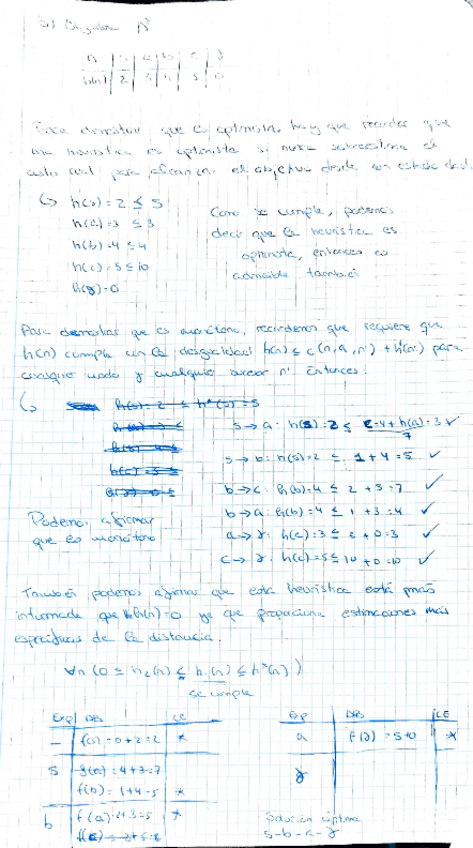 a) Algoritmo A*
n | s | a | b | c | γ
h(n) | 2 | 3 | 4 | 5 | 0
Para demostrar que es optimista, hay que recordar que
una heurística es optimista si nunca sobreestima el
costo real para alcanzar el objetivo desde un estado dado.
↳ h(s)=2 ≤ 5
h(a)=3 ≤ 3
h(b)=4 ≤ 4
h(c)=5 ≤ 10
h(γ)=0
Como se cumple, podemos
decir que la heurística es
optimista, entonces es
admisible también
Para demostrar que es monótona, recordemos que requiere que
h(n) cumpla con la desigualdad h(n) ≤ c(n,a,n') + h(n') para
cualquier nodo y cualquier sucesor n'. Entonces:
↳ h(s)=2 ≤ h*(s)=5
s → a: h(s)=2 ≤ c=4+h(a)=3 ✓
7
s → b: h(s)=2 ≤ 1+4=5 ✓
b → c: h(b)=4 ≤ 2+5=7 ✓
b → a: h(b)=4 ≤ 1+3=4 ✓
a → γ: h(c)=3 ≤ 2+0=3 ✓
c → γ: h(c)=5 ≤ 10+0=10 ✓
Podemos afirmar
que es monótona
También podemos afirmar que esta heurística está más
informada que h(n)=0 ya que proporciona estimaciones más
específicas de la distancia.
∀n (0 ≤ h₂(n) ≤ h₁(n) ≤ h*(n))
se cumple
Exp | AB | LE
— | f(s)=0+2=2 | *
s | f(a)=4+3=7
f(b)=1+4=5 | *
b | f(a)=2+3=5 | *
Exp | AB | LE
a | f(γ)=5+0 | *
γ
Solución óptima
s-b-a-γ